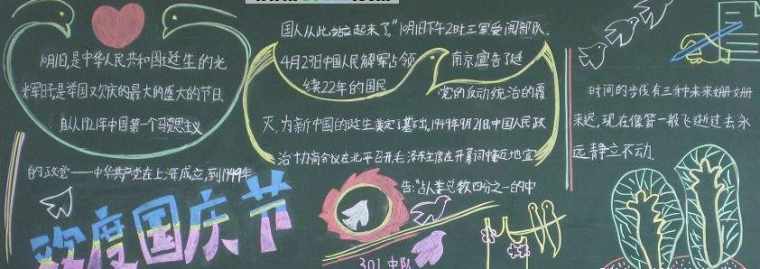 10月1日,是中华人民共和国诞生的光
辉日子,是举国欢庆的最大的盛大的节日
自从1921年中国第一个马克思主义
的政党——中华共产党在上海成立,到1949年
欢度国庆节
国人从此站起来了"10月1日下午2时三军受阅部队
4月23日中国人民解军占领 南京,宣告了延
续22年的国民 党的反动统治的覆
灭,为新中国的诞生奠定了基础,1949年9月21日,中国人民政
治协商会议在北平召开,毛泽东主席在开幕词中豪迈地宣
告:"占人类总数四分之一的中
301中队
时间的步伐有三种未来姗姗
来迟,现在像箭一般飞逝过去永
远静立不动